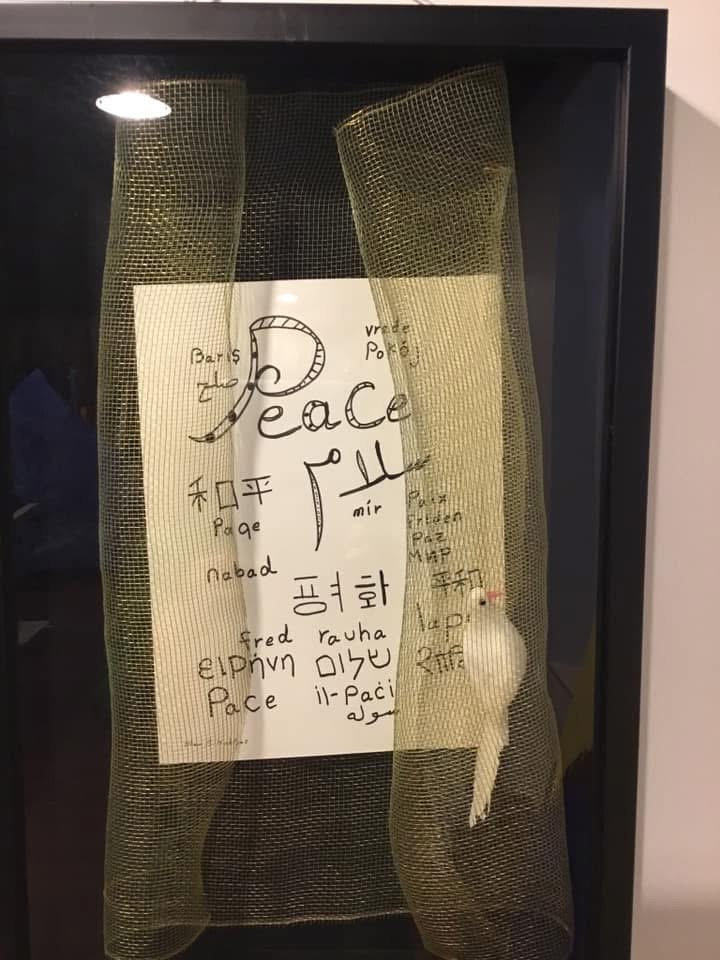 vrede
Pokój
Barış
صلح
Peace
سلام
和平
mír
Paqe
Paix
friden
Paz
МИР
nabad
평화
平和
fred rauha
ειρήνη שלום
Pace il-Paċi
سوله